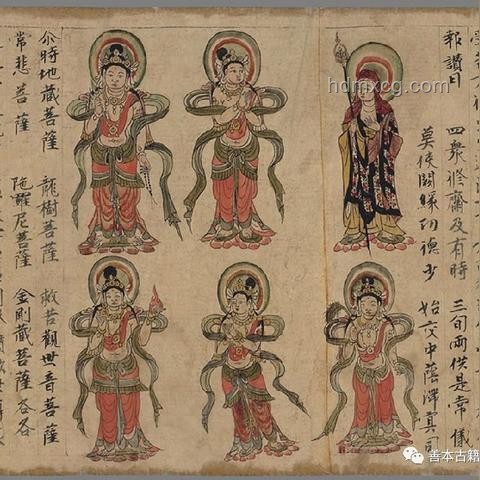 報讚曰 四衆修齋及有時 三旬兩供是常儀
莫使闕緣功德少 始交中陰滯冥司
尒時地藏菩薩 龍樹菩薩 救苦觀世音菩薩
常悲菩薩 陁羅尼菩薩 金剛藏菩薩各各
hdmxcg.com
善本古籍